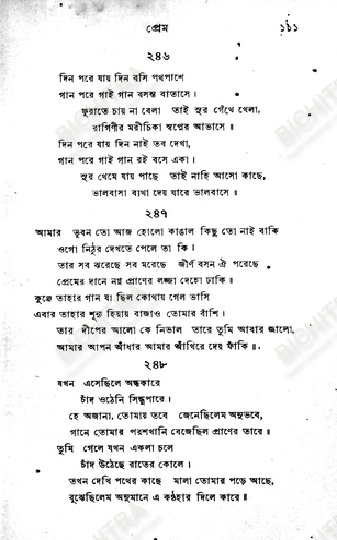 প্রেম ১১১
২৪৬
দিন পরে যায় দিন বসি পথপাশে
গান পরে গাই গান বসন্ত বাতাসে।
ফুরাতে চায় না বেলা তাই সুর গেঁথে খেলা,
রাগিণীর মরীচিকা স্বপ্নের আভাসে॥
দিন পরে যায় দিন নাই তব দেখা,
গান পরে গাই গান রই বসে একা।
সুর থেমে যায় পাছে তাই নাহি আসো কাছে,
ভালবাসা ব্যথা দেয় যারে ভালবাসে॥
২৪৭
আমার ভুবন তো আজ হোলো কাঙাল কিছু তো নাই বাকি
ওগো নিঠুর দেখতে পেলে তা কি।
তার সব ঝরেছে সব মরেছে জীর্ণ বসন ঐ পরেছে
প্রেমের দানে নগ্ন প্রাণের লজ্জা দেহো ঢাকি॥
কুঞ্জে তাহার গান যা ছিল কোথায় গেল ভাসি
এবার তাহার শূন্য হিয়ায় বাজাও তোমার বাঁশি।
তার দীপের আলো কে নিভাল তারে তুমি আবার জ্বালো,
আমার আপন আঁধার আমার আঁখিরে দেয় ফাঁকি॥
২৪৮
যখন এসেছিলে অন্ধকারে
চাঁদ ওঠেনি সিন্ধুপারে।
হে অজানা, তোমায় তবে জেনেছিলেম অনুভবে,
গানে তোমার পরশখানি বেজেছিল প্রাণের তারে॥
তুমি গেলে যখন একলা চলে
চাঁদ উঠেছে রাতের কোলে।
তখন দেখি পথের কাছে মালা তোমার পড়ে আছে,
বুঝেছিলেম অনুমানে এ কণ্ঠহার দিলে কারে॥
BICHITRA